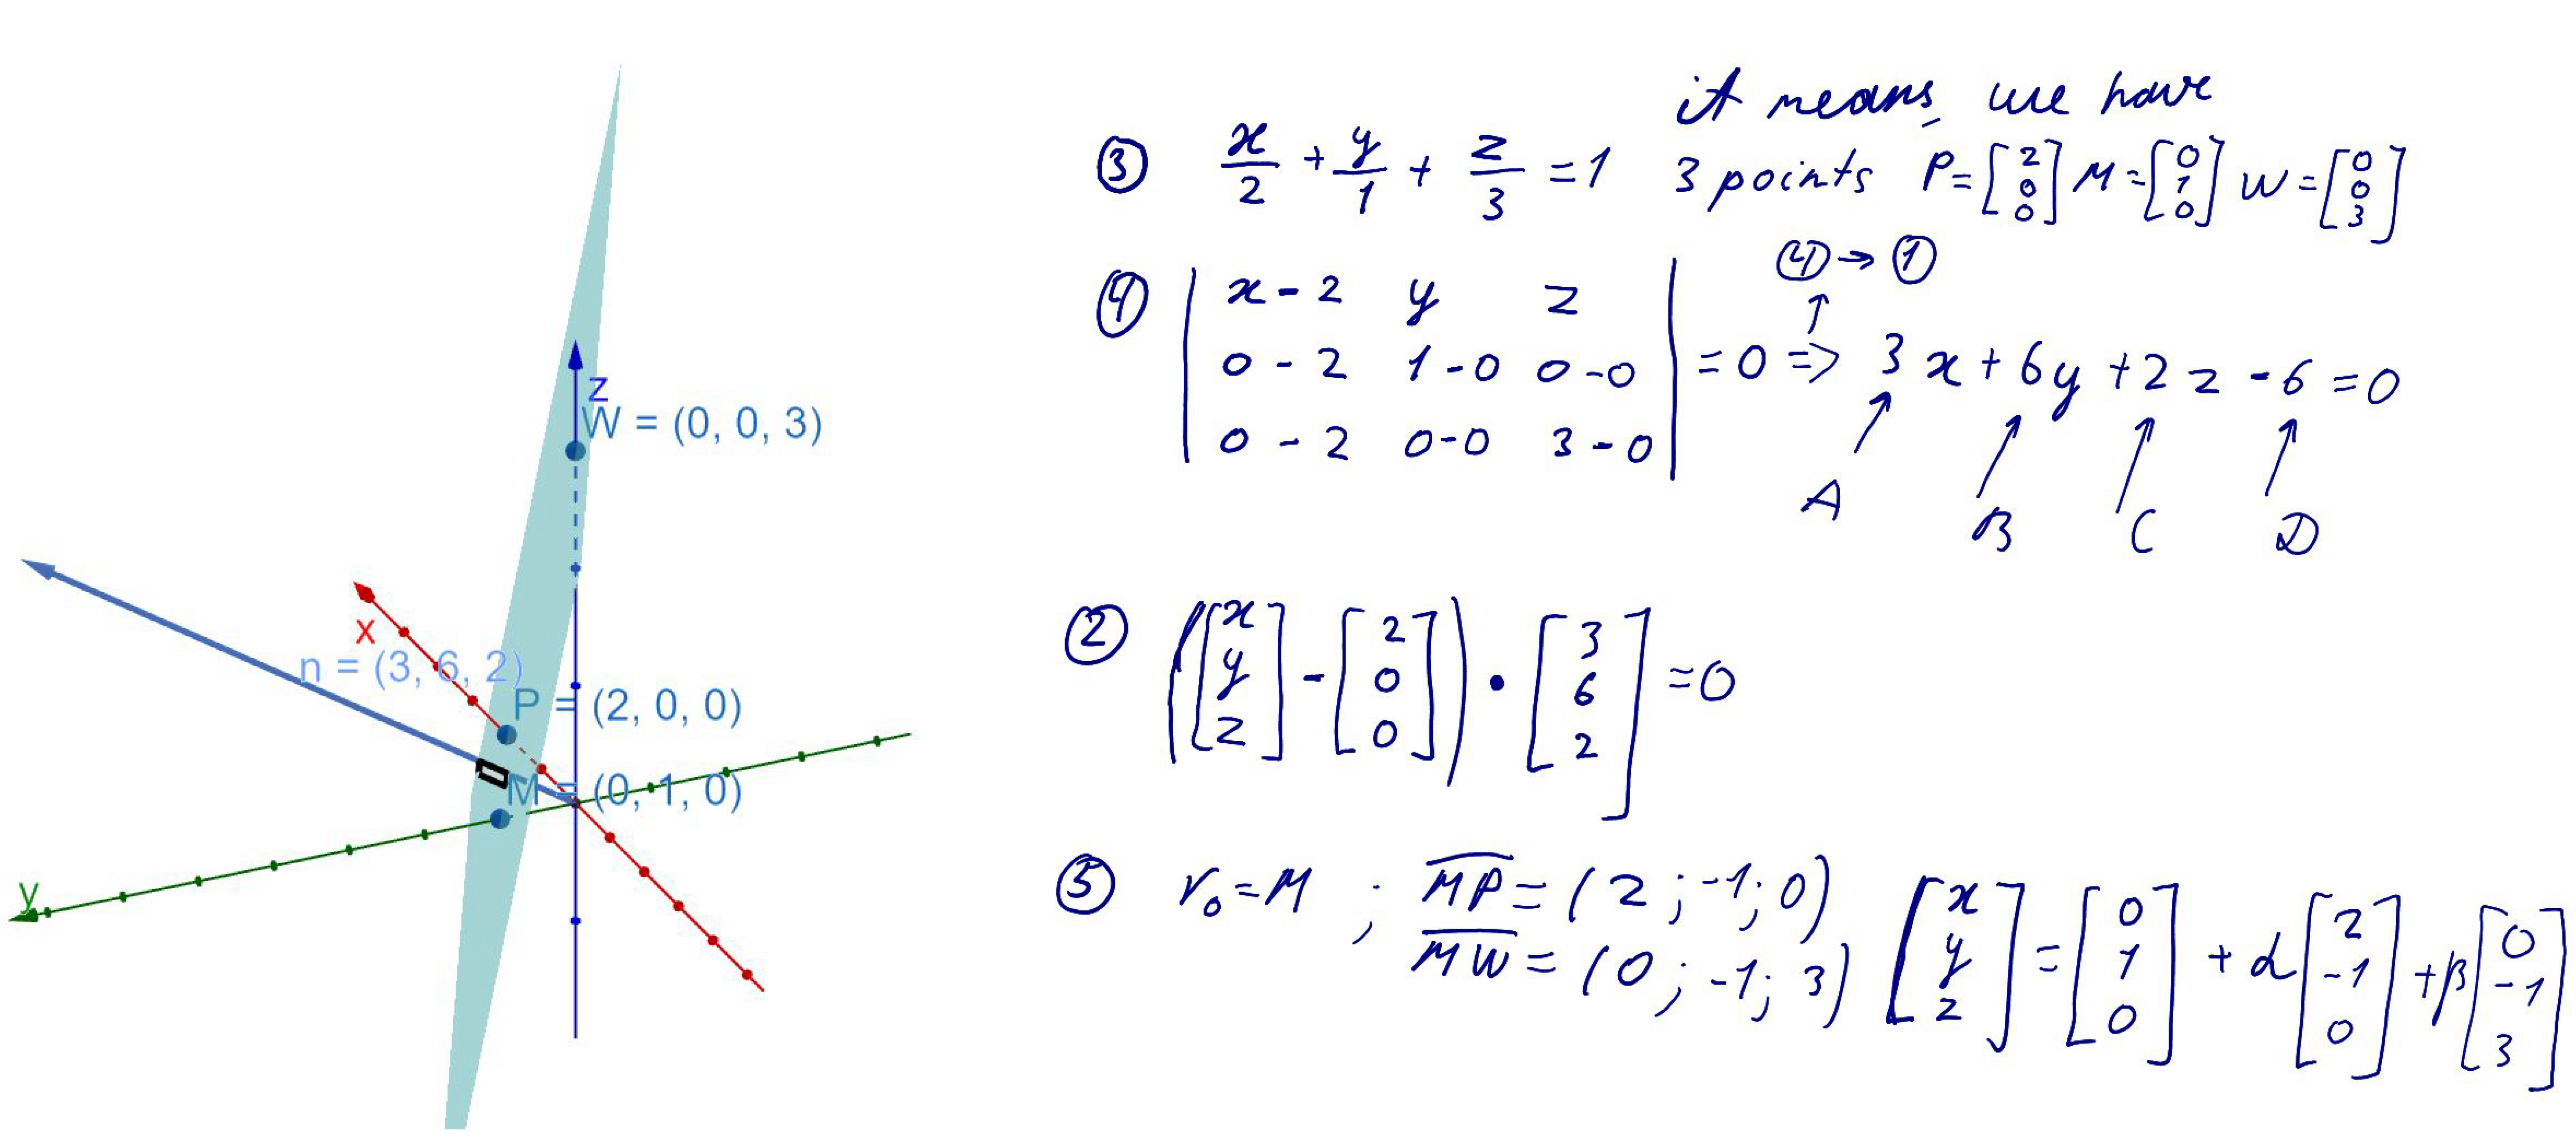 z
W = (0, 0, 3)
x
n = (3, 6, 2)
P = (2, 0, 0)
M = (0, 1, 0)
y
it means, we have
③ x/2 + y/1 + z/3 = 1 3 points P = [2 0 0] M = [0 1 0] W = [0 0 3]
④ → ①
↑
④ | x - 2 y z |
| 0 - 2 1 - 0 0 - 0 | = 0 => 3x + 6y + 2z - 6 = 0
| 0 - 2 0 - 0 3 - 0 |
A B C D
② ([x y z] - [2 0 0]) • [3 6 2] = 0
⑤ r₀ = M ; MP = (2 ; -1 ; 0)
MW = (0 ; -1 ; 3) [x y z] = [0 1 0] + α [2 -1 0] + β [0 -1 3]